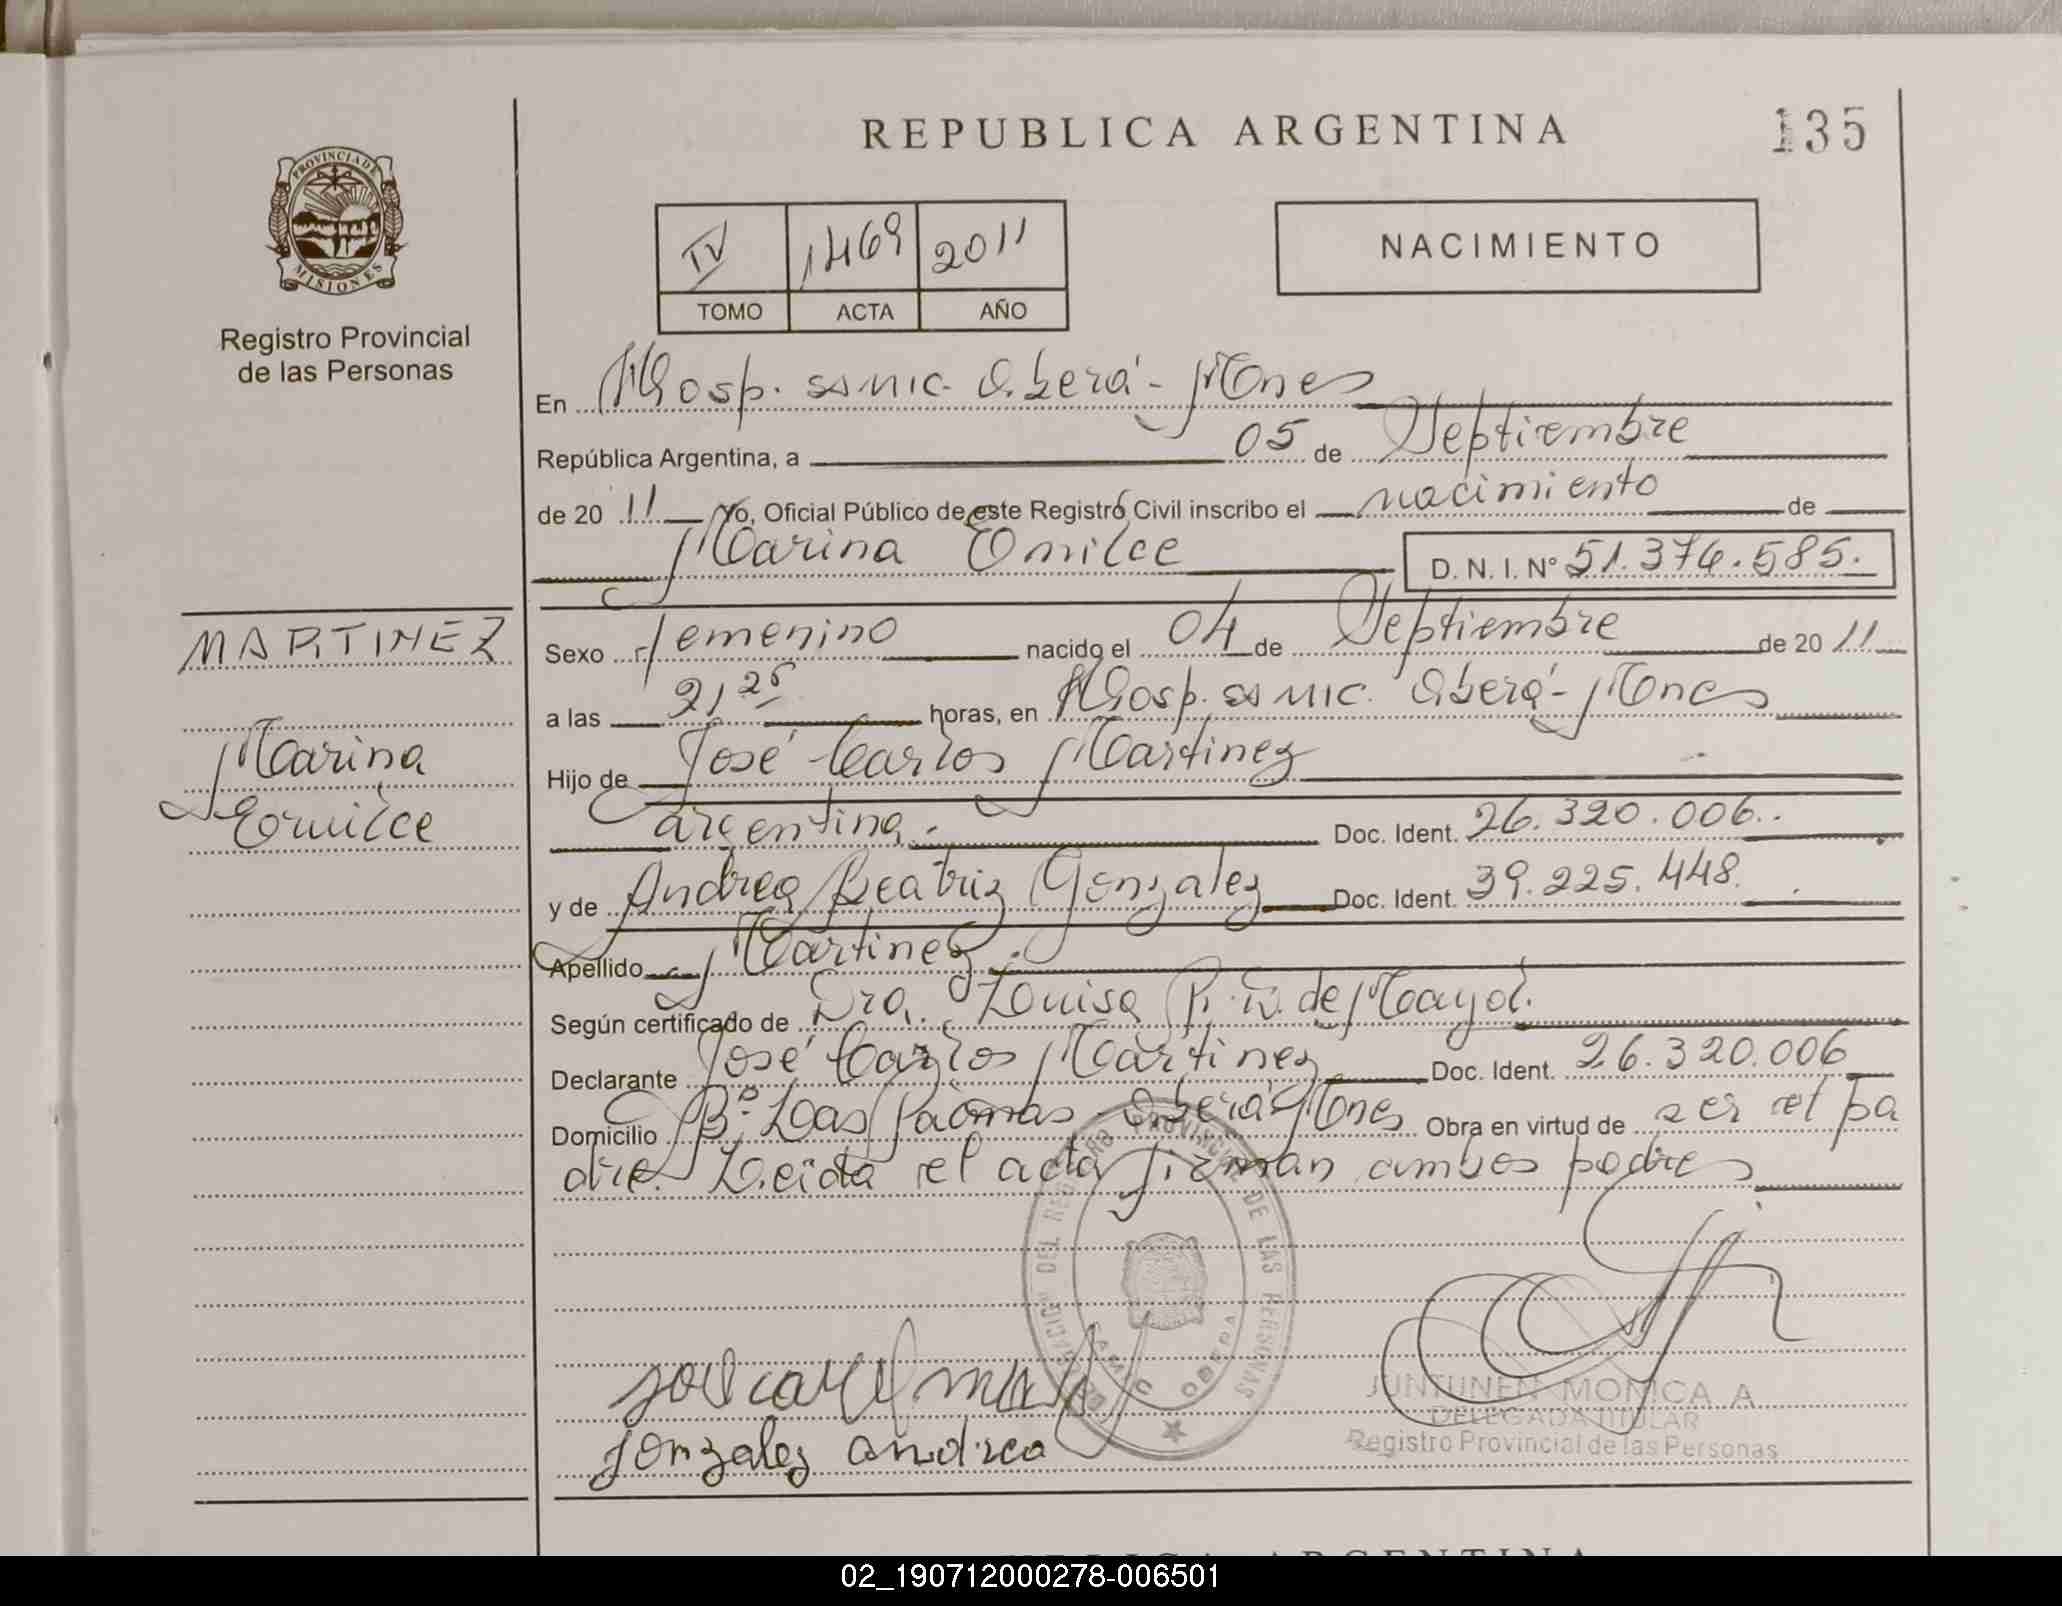 REPUBLICA ARGENTINA
135
PROVINCIA DE
MISIONES
Registro Provincial
de las Personas
IV 1469 2011
TOMO ACTA AÑO
NACIMIENTO
En Hosp. samic. Oberá - Mnes
República Argentina, a 05 de Septiembre
de 20 11 Yo, Oficial Público de este Registro Civil inscribo el nacimiento de
Marina Emilce D. N. I. Nº 51.374.585.
MARTINEZ
Marina
Emilce
Sexo femenino nacido el 04 de Septiembre de 20 11
a las 21,25 horas, en Hosp. samic. Oberá - Mnes
Hijo de José Carlos Martinez
argentina. Doc. Ident. 26.320.006..
y de Andrea Beatriz Gonzalez Doc. Ident. 39.225.448.
Apellido Martinez.
Según certificado de Dra. Luisa de Mayol.
Declarante José Carlos Martinez Doc. Ident. 26.320.006
Domicilio Bº. Las Palmas - Oberá - Mnes Obra en virtud de ser el pa
dre. Leida el acta firman ambos padres
DEL REGISTRO PROVINCIAL DE LAS PERSONAS
SAMIC OBERA
JUNTUNEN MONICA A
DELEGADA TITULAR
Registro Provincial de las Personas
gonzalez andrea
02_190712000278-006501